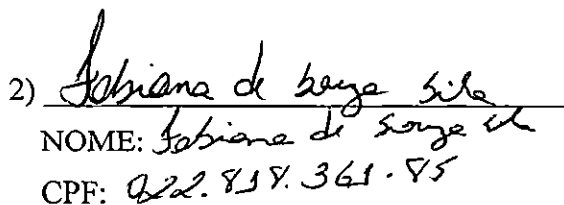 2) Fabiana de Souza Silva
NOME: Fabiana de Souza
CPF: 022.818.361-85